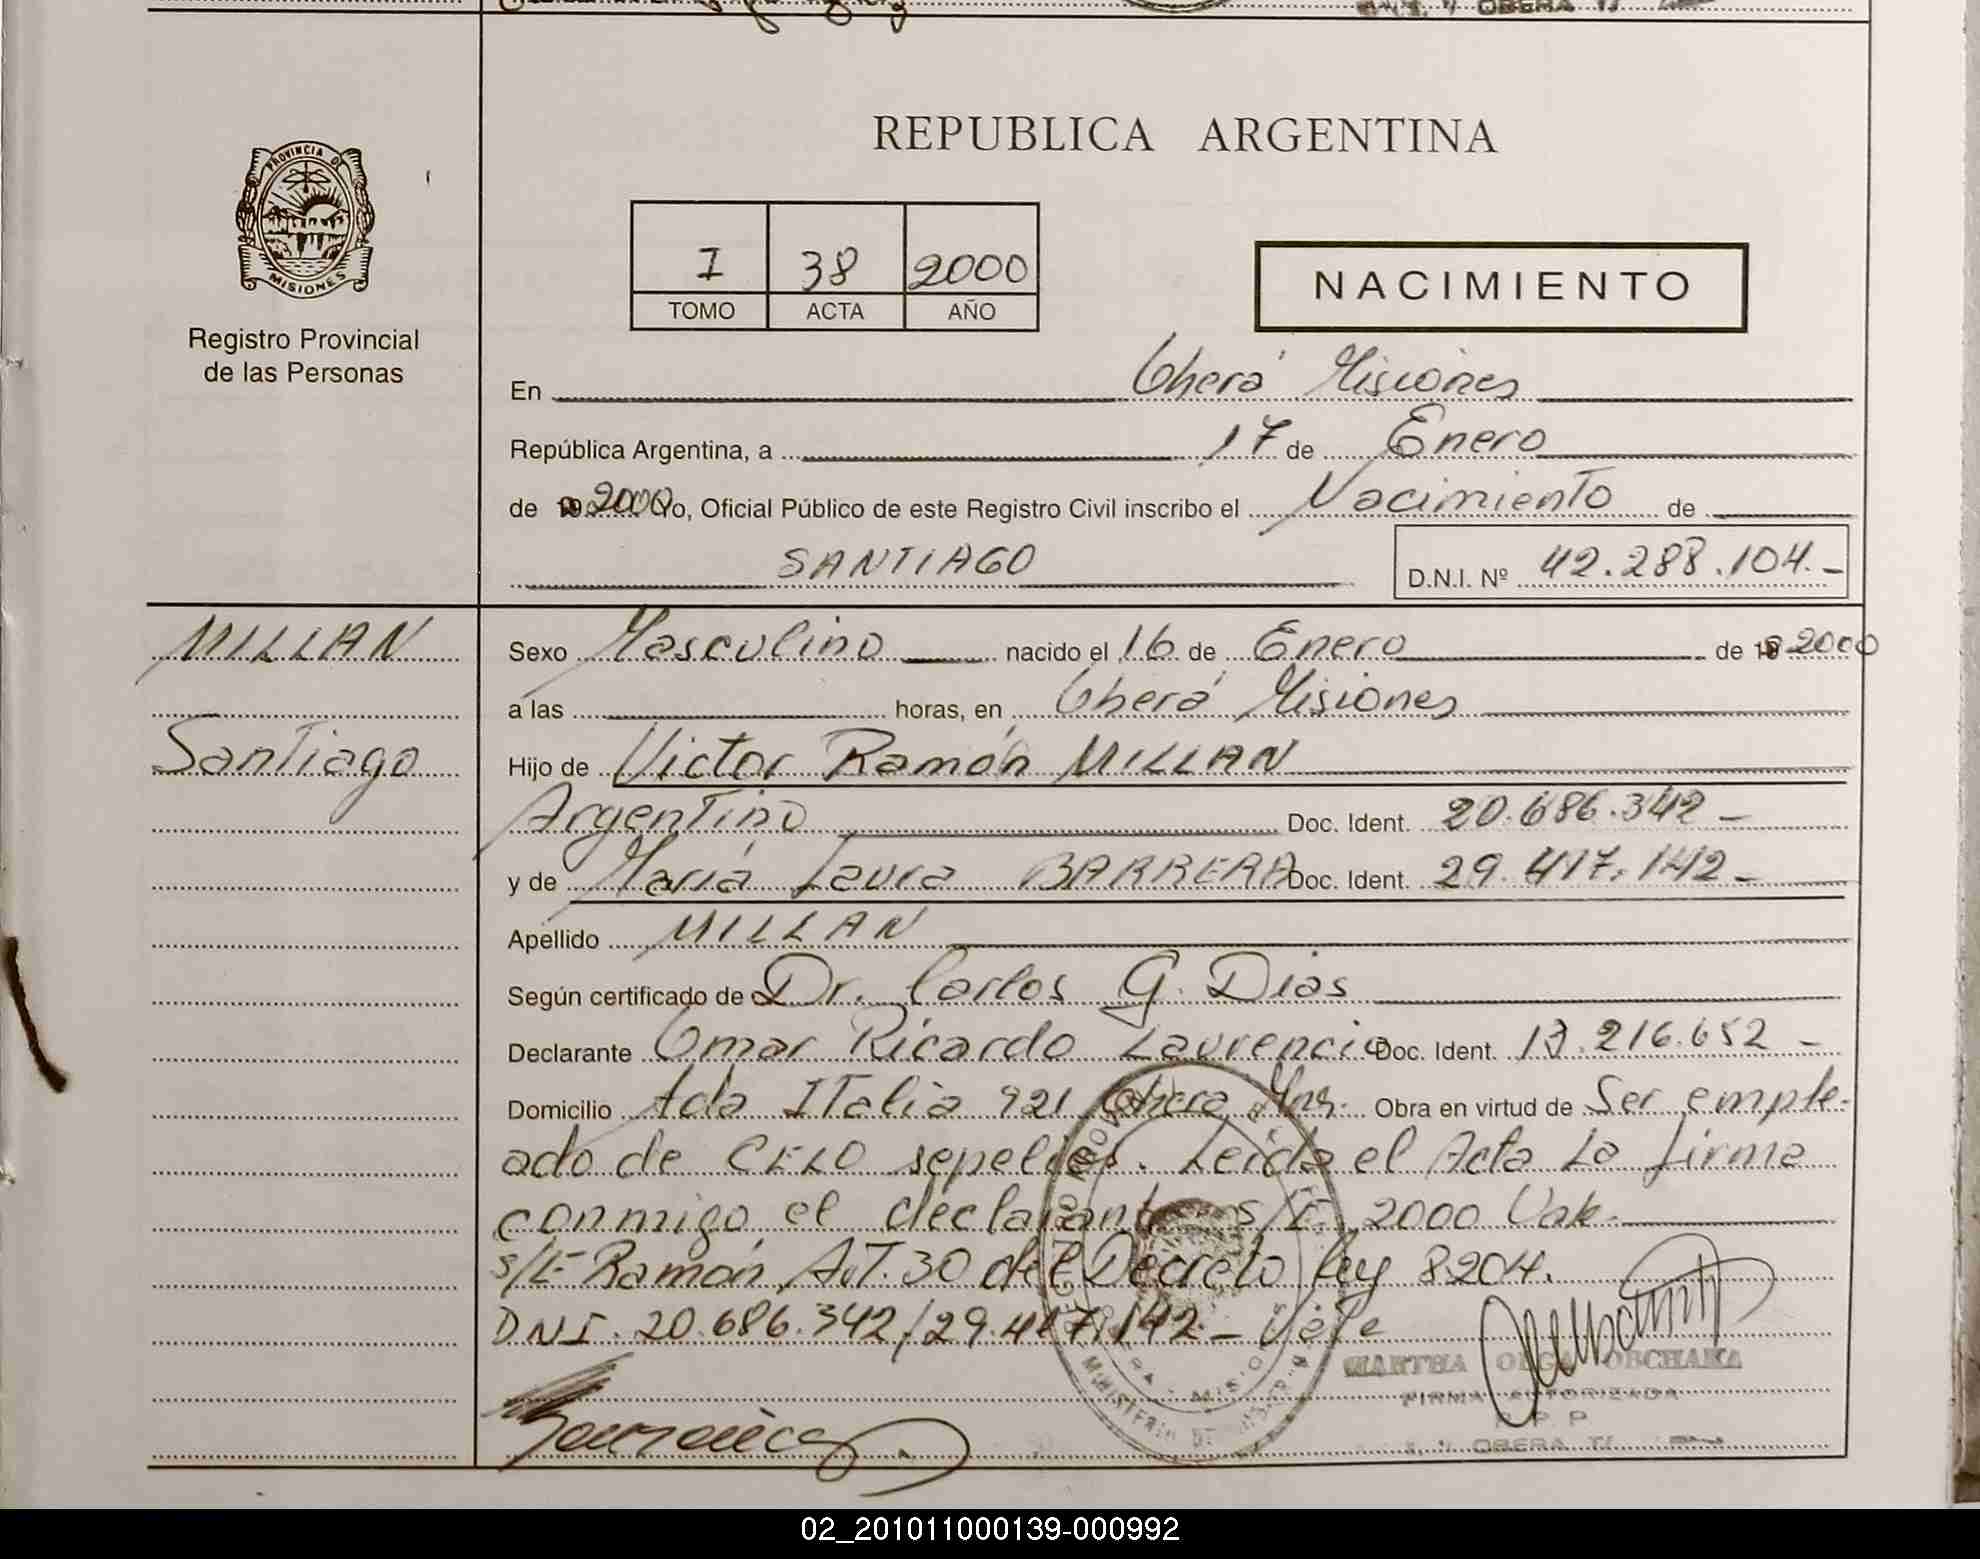 REPUBLICA ARGENTINA
PROVINCIA DE
MISIONES
Registro Provincial
de las Personas
I 38 2000
TOMO ACTA AÑO
NACIMIENTO
En Oberá Misiones
República Argentina, a 17 de Enero
de 19 2000 Yo, Oficial Público de este Registro Civil inscribo el Nacimiento de
SANTIAGO D.N.I. Nº 42.288.104.-
MILLAN
Santiago
Sexo Masculino nacido el 16 de Enero de 19 2000
a las horas, en Oberá Misiones
Hijo de Victor Ramón MILLAN
Argentino Doc. Ident. 20.686.342-
y de María Laura BARRERA Doc. Ident. 29.417.142-
Apellido MILLAN
Según certificado de Dr. Carlos G. Dias
Declarante Omar Ricardo Laurencio Doc. Ident. 13.216.652-
Domicilio Avda ITalia 921 Obera Mns. Obra en virtud de Ser emple-
ado de CELO sepelios. Leida el Acta La firma
conmigo el declarante s/E 2000 Vale.
s/E Ramón Art. 30 del Decreto ley 8204.
DNI. 20.686.342/29.417.142.- Vale
MARTHA OLGA OBCHAKA
FIRMA AUTORIZADA
R. P. P.
OBERA
02_201011000139-000992